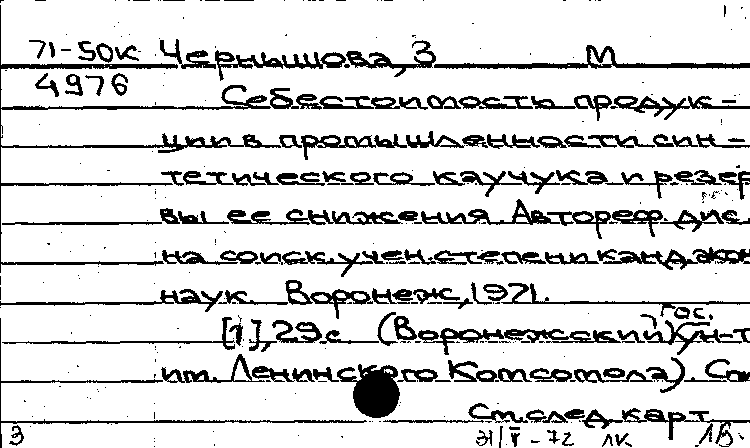 71-50к Чернышова, З М
4976
Себестоимость продук-
ции в промышленности син-
тетического каучука и резер
вы ее снижения. Автореф. дис.
на соиск. учен. степени канд. экон
наук. Воронеж, 1971.
гос.
[1], 29 с. (Воронежский ун-т
им. Ленинского Комсомола). Сп
См. след. карт.
3 31/V-72 ЛК ЛВ.